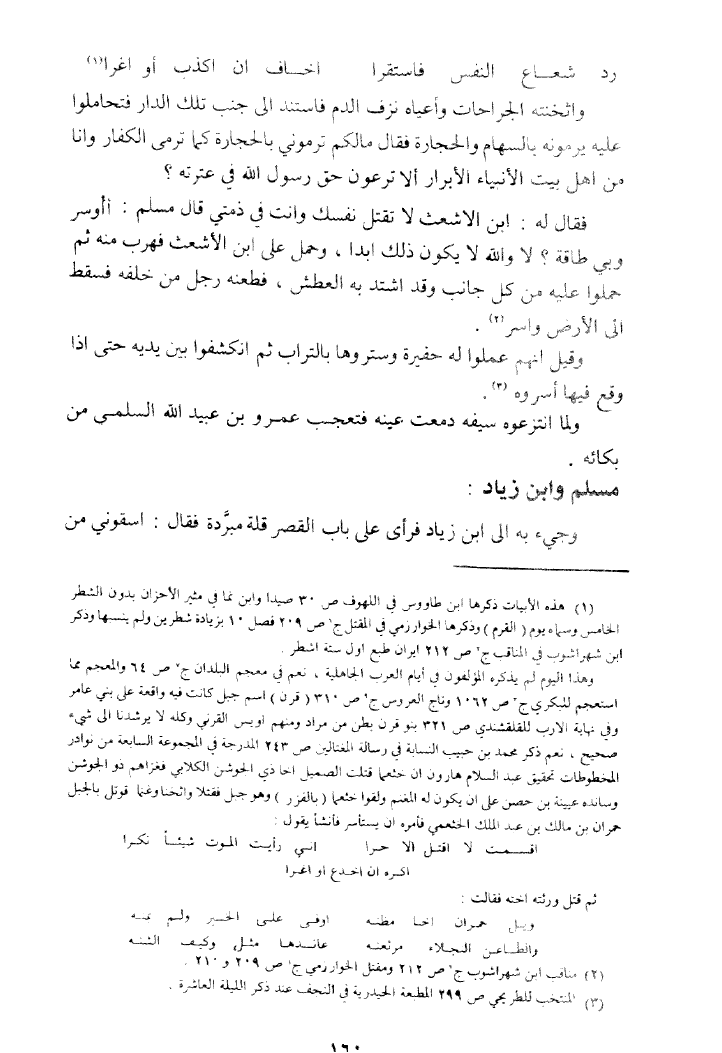 رد شعـــاع النفس فاستقرا اخـــاف ان اكذب أو اغرا(١)
واثخنته الجراحات وأعياه نزف الدم فاستند الى جنب تلك الدار فتحاملوا
عليه يرمونه بالسهام والحجارة فقال مالكم ترموني بالحجارة كما ترمى الكفار وانا
من اهل بيت الأنبياء الأبرار ألا ترعون حق رسول الله في عترته ؟
فقال له : ابن الاشعث لا تقتل نفسك وانت في ذمتي قال مسلم : أأوسر
وبي طاقة ؟ لا والله لا يكون ذلك ابدا ، وحمل على ابن الأشعث فهرب منه ثم
حملوا عليه من كل جانب وقد اشتد به العطش ، فطعنه رجل من خلفه فسقط
الى الأرض واسر(٢) .
وقيل انهم عملوا له حفيرة وستروها بالتراب ثم انكشفوا بين يديه حتى اذا
وقع فيها أسروه (٣).
ولما انتزعوه سيفه دمعت عينه فتعجب عمرو بن عبيد الله السلمي من
بكائه .
مسلم وابن زياد :
وجيء به الى ابن زياد فرأى على باب القصر قلة مبرَّدة فقال : اسقوني من
(١) هذه الأبيات ذكرها ابن طاووس في اللهوف ص ٣٠ صيدا وابن نما في مثير الأحزان بدون الشطر
الخامس وسماه يوم ( القرم ) وذكرها الخوارزمي في المقتل ج١ ص ٢٠٩ فصل ١٠ بزيادة شطرين ولم ينسبها وذكر
ابن شهراشوب في المناقب ج٢ ص ٢١٢ ايران طبع اول ستة اشطر .
وهذا اليوم لم يذكره المؤلفون في أيام العرب الجاهلية ، نعم في معجم البلدان ج٧ ص ٦٤ والمعجم مما
استعجم للبكري ج٣ ص ١٠٦٢ وتاج العروس ج٩ ص ٣١٠ ( قرن ) اسم جبل كانت فيه واقعة على بني عامر
وفي نهاية الارب للقلقشندي ص ٣٢١ بنو قرن بطن من مراد ومنهم اويس القرني وكله لا يرشدنا الى شيء
صحيح ، نعم ذكر محمد بن حبيب النسابة في رسالة المغتالين ص ٢٤٣ المدرجة في المجموعة السابعة من نوادر
المخطوطات تحقيق عبد السلام هارون ان خثعما قتلت الصميل اخا ذي الجوشن الكلابي فغزاهم ذو الجوشن
وسانده عيينة بن حصن على ان يكون له المغنم ولقوا خثعما ( بالفزر ) وهو جبل فقتلا واثخنا وغنما قوتل بالجبل
حمران بن مالك بن عبد الملك الخثعمي فأمره ان يستأسر فأنشأ يقول :
اقســمت لا اقتــل الا حــرا انــي رأيــت المــوت شيئــاً نكــرا
اكــره ان اخــدع او اغــرا
ثم قتل ورثته اخته فقالت :
ويــل حمــران اخــا مظنــه اوفــى علــى الخيــر ولــم يمنــه
والطاعــن النجــلاء مرثعنــه عاندهــا مثــل وكيــف الشنــه
(٢) مناقب ابن شهراشوب ج٢ ص ٢١٢ ومقتل الخوارزمي ج١ ص ٢٠٩ و ٢١٠ .
(٣) المنتخب للطريحي ص ٢٩٩ المطبعة الحيدرية في النجف عند ذكر الليلة العاشرة .
١٦٠